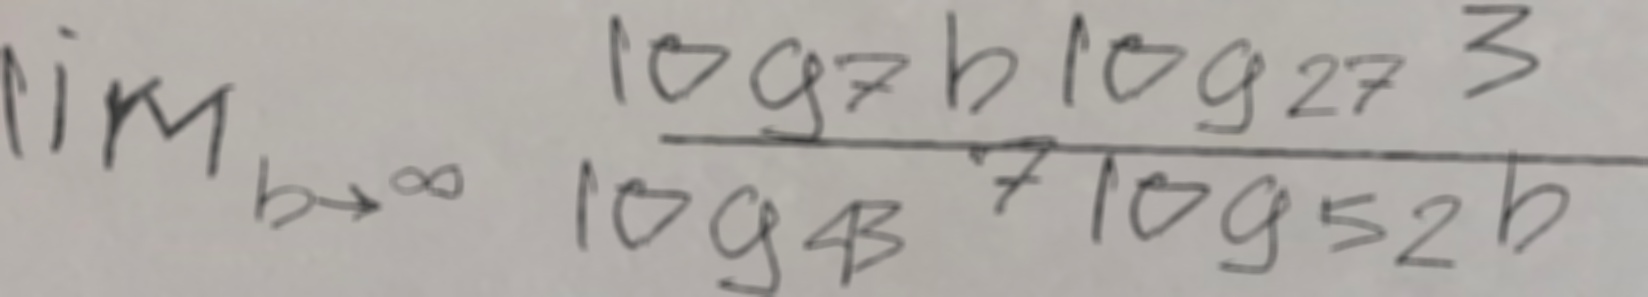 lim b→∞ log₇ b log₂₇ 3 / log₄₃ 7 log₅₂ b